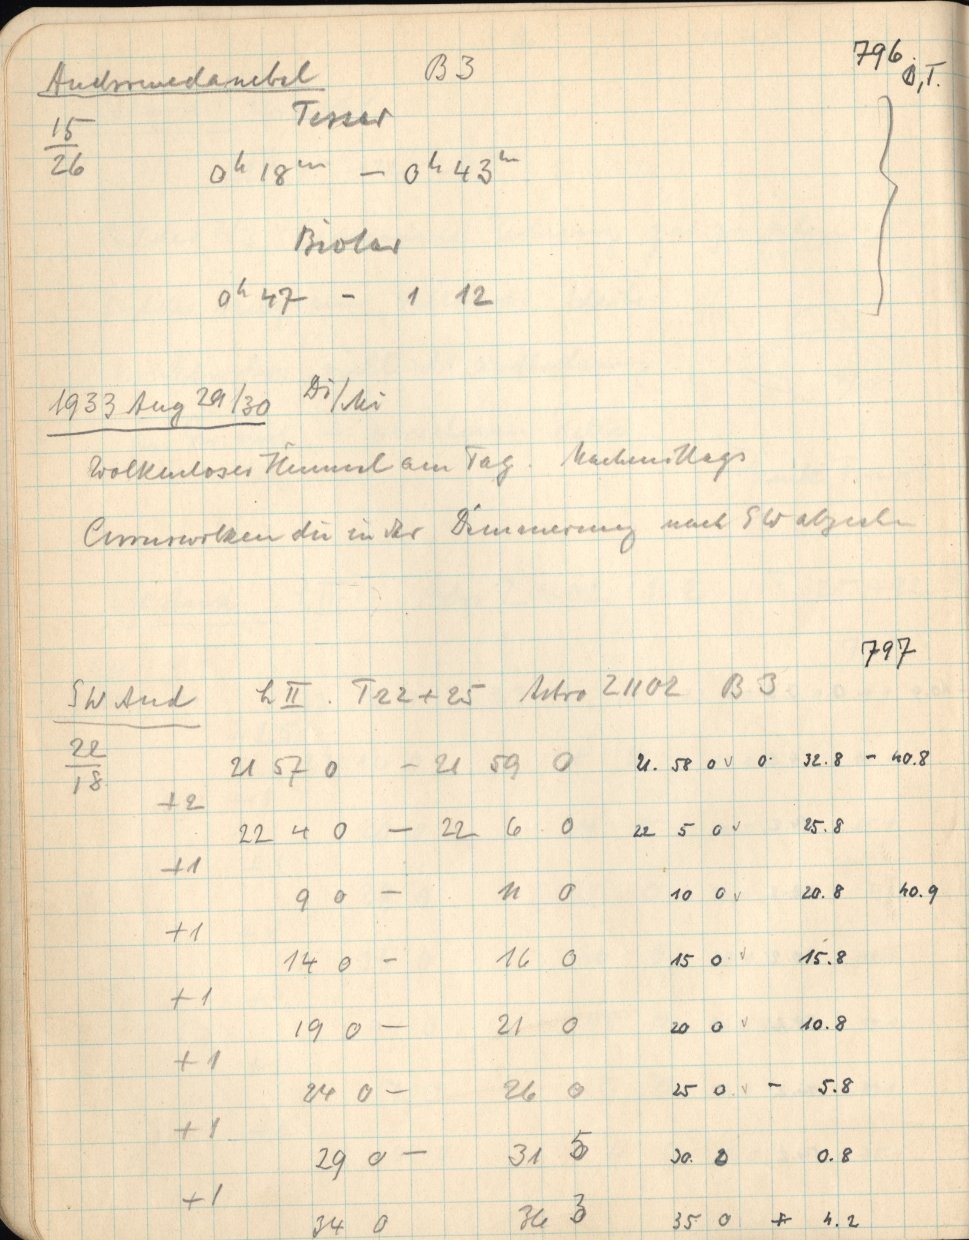 Andromedanebel B3 796 D,T.
15/26 Tessar
0h 18m — 0h 43m
Biotar
0h 47 - 1 12
1933 Aug 29/30 Di/Mi
Wolkenloser Himmel am Tag. Nachmittags
Cirruswolken die in der Dämmerung nach SW abziehen
797
SW And L II. T22+25 Astro 21102 B3
22/18 21 57 0 - 21 59 0 21. 58 0 v 0. 32.8 - 40.8
+2
22 4 0 — 22 6 0 22 5 0 v 25.8
+1
9 0 — 11 0 10 0 v 20.8 40.9
+1
14 0 - 16 0 15 0 v 15.8
+1
19 0 — 21 0 20 0 v 10.8
+1
24 0 - 26 0 25 0 v - 5.8
+1
29 0 — 31 5 30. 2 0.8
+1
34 0 36 3 35 0 + 4.2